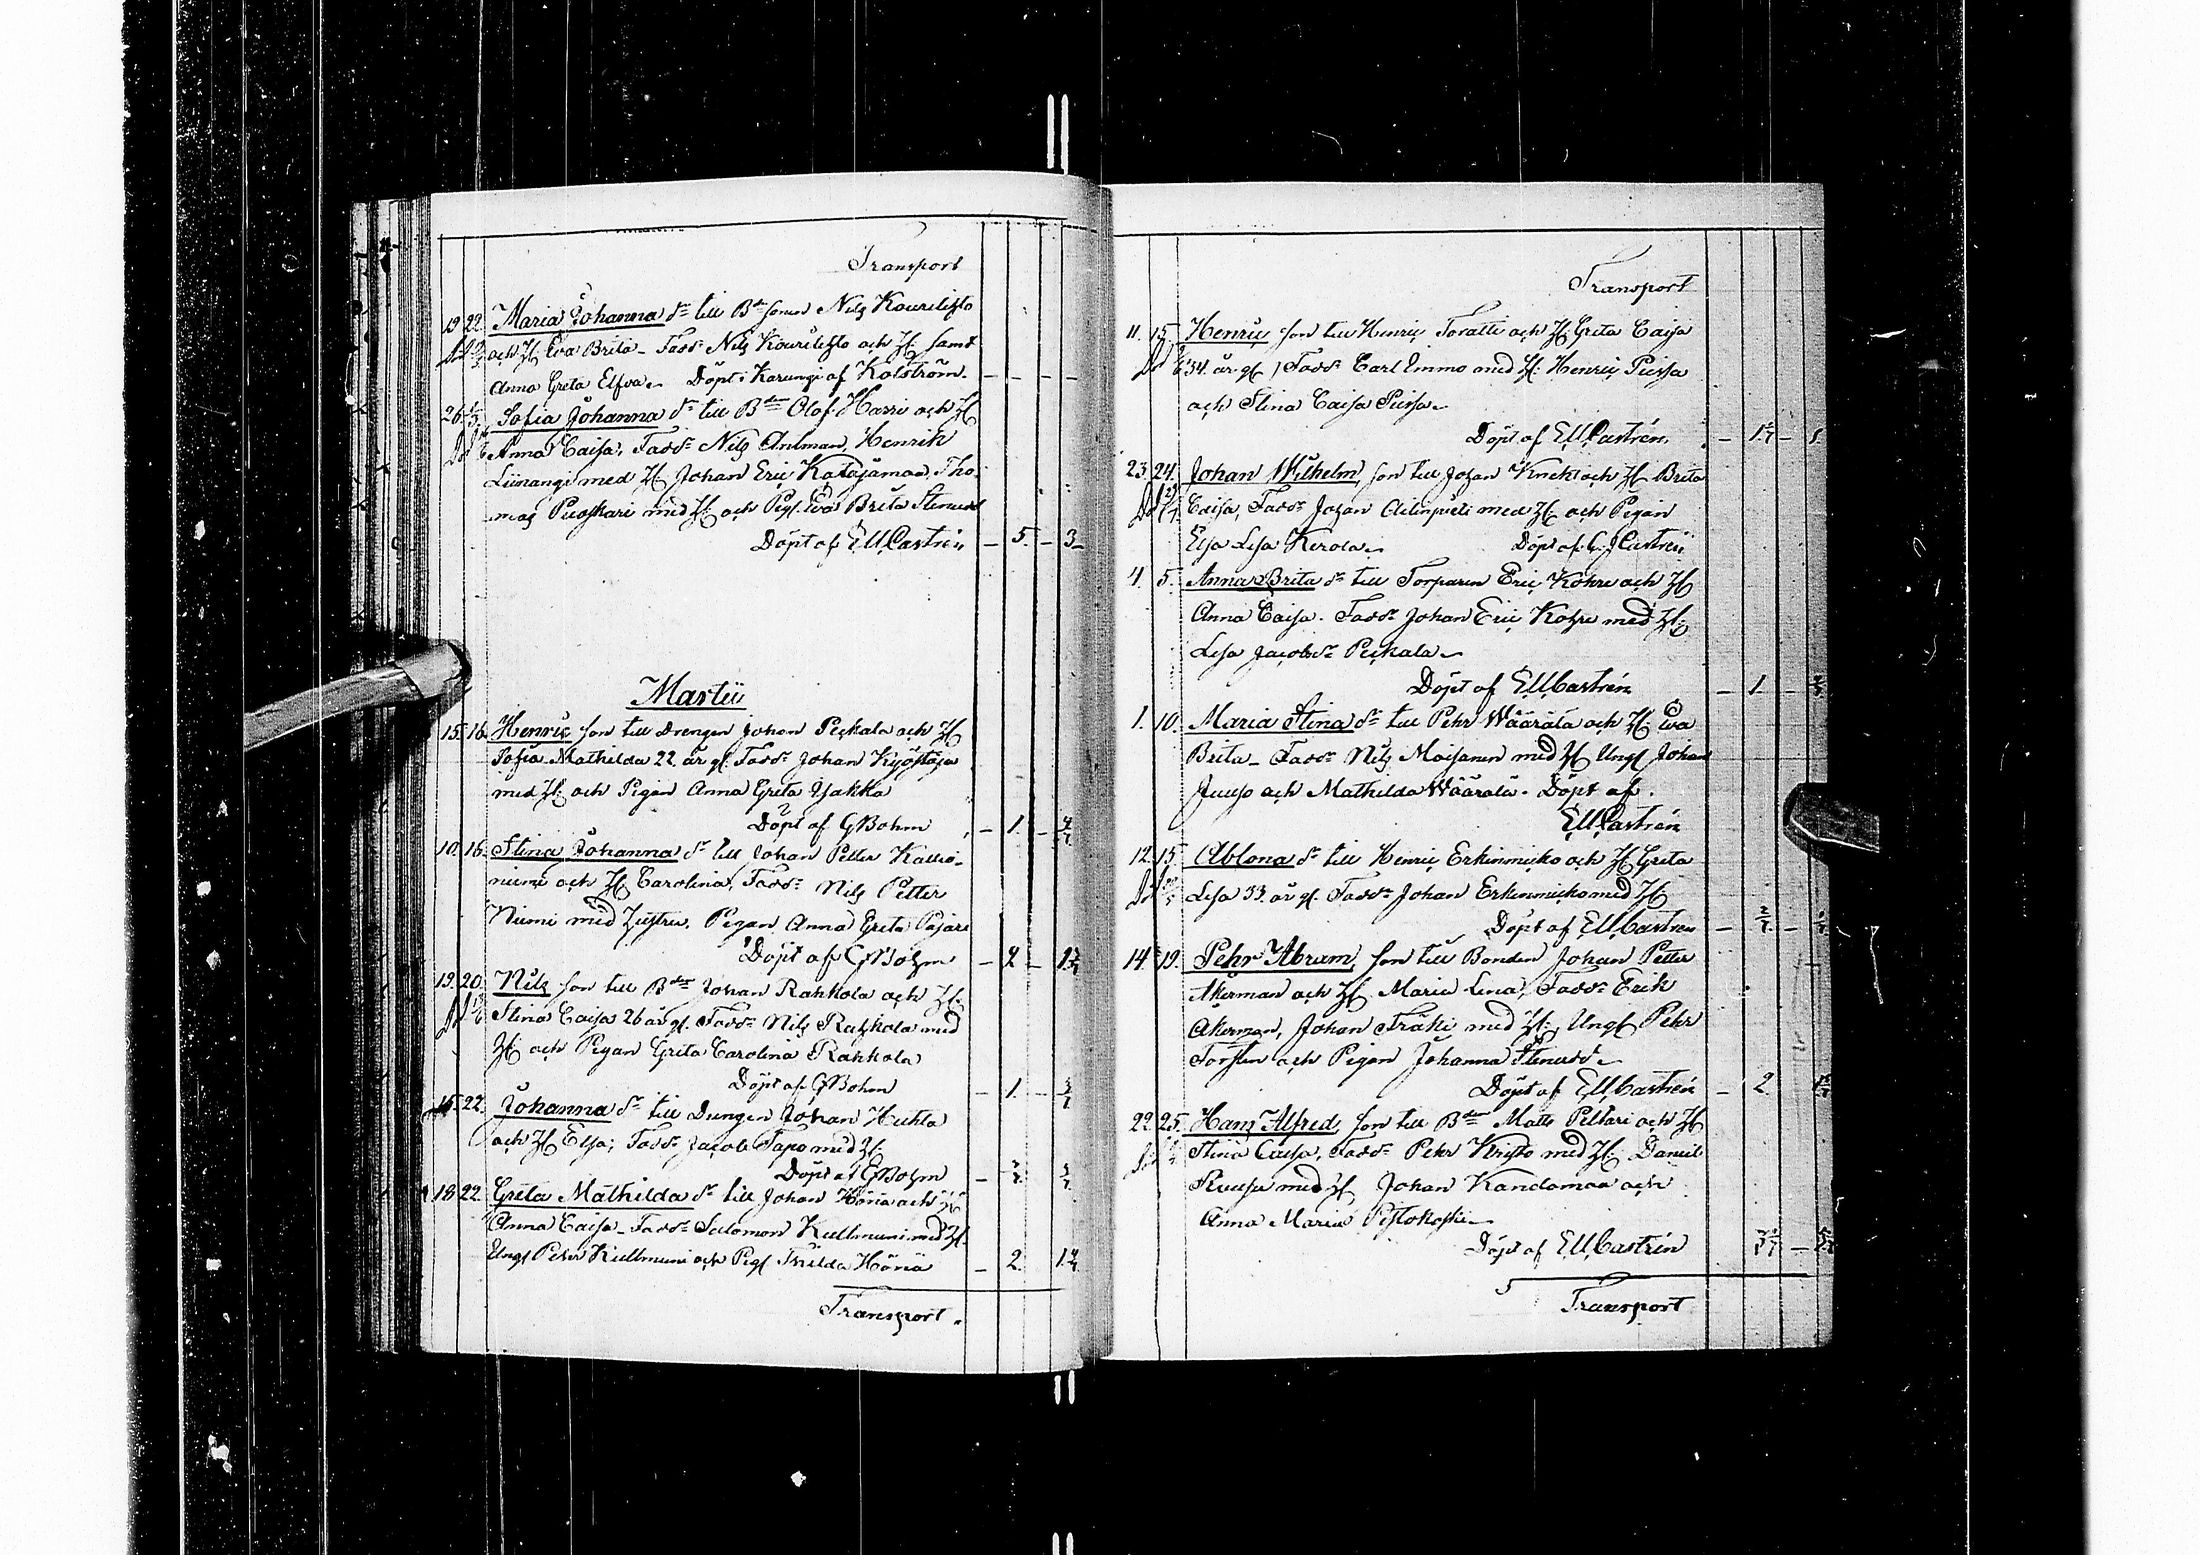 Transport
19 22 Maria Johanna dr till Bdesonen Nils Kourilehto
och H. Eva Brita. Faddr Nils Kourilehto och H. samt
Anna Greta Elfva. Döpt i Karungi af Kolström. – – –
26 Sofia Johanna dr till Bden Olof Harri och H
Anna Caisa, Faddr Nils Anlman, Henrik
Liinangi med H Johan Eric Katajamaa, Tho-
mas Puoskari med H. och Pig. Eva Brita Stenudd
Döpt af E.U. Castrén – 5. – 3 –
Martii
15. 16. Henric son till Drengen Johan Peckala och H
Sofia Mathilda 22 år gl. Faddr Johan Kyöstäjä
med H. och Pigan Anna Greta Yjakka
Döpt af G Bohm – 1. –
10. 16. Stina Johanna dr till Johan Petter Kallio-
niemi och H Carolina, Faddr Nils Petter
Niemi med Hustru. Pigan Anna Greta Pajari
Döpt af G Bohm – 2 –
19. 20. Nils son till Bden Johan Rahkola och H.
Stina Caisa 26 år gl. Faddr Nils Rahkola med
H. och Pigan Greta Carolina Rahkola
Döpt af G Bohm – 1. –
15. 22. Johanna dr till Drengen Johan Huhta
och H Elsa; Faddr Jacob Tapo med H.
Döpt af G Bohm –
18 22. Greta Mathilda dr till Johan Höriä och H
Anna Caisa. Faddr Salomon Kullmuni med H.
Ungl Pehr Kullmuni och Pigl Thilda Höriä – 2.
Transport.
Transport
11. 15. Henric son till Henric Toratti och H. Greta Caisa
34 år gl / Faddr Carl Emmo med H. Henric Piirsa
och Stina Caisa Piirsa.
Döpt af E.U. Castrén.
23. 24. Johan Wilhelm, son till Johan Knekt och H Brita
Caisa, Faddr Johan med H och Pigan
Elsa Lisa Kerola. Döpt af G. J Castrén
4. 5. Anna Brita dr till Torparen Eric Kohre och H
Anna Caisa. Faddr Johan Eric Kohre med H.
Lisa Jacobsdr Peckala.
Döpt af E.U. Castrén – 1. –
1. 10. Maria Stina dr till Pehr Wäärälä och H. Eva
Brita. Faddr Nils Moisanen med H Ungl Johan
Juuso och Mathilda Wäärälä. Döpt af.
E.U. Castrén
12. 15. Ablona dr till Henric Erkinmicko och H Greta
Lisa 33. år gl. Faddr Johan Erkinmicko med H
Döpt af E.U. Castrén –
14. 19. Pehr Abram, son till Bonden Johan Petter
Åkerman och H Maria Lena, Faddr Erik
Åkerman, Johan Träki med H., Ungl Pehr
Torsten och Pigan Johanna Stenudd.
Döpt af E.U. Castrén – 2.
22. 25. Hans Alfred, son till Bden Matts Peltari och H
Stina Caisa, Faddr Pehr Kristo med H. Daniel
Ruusa med H Johan Kandamaa och
Anna Maria Pistokoski.
Döpt af E.U. Castrén
Transport